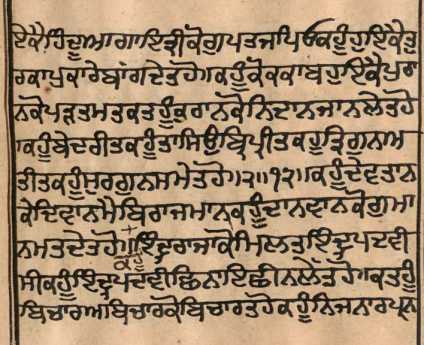 ਇਕੈਹਿੰਦੂਆਗਾਇਤ੍ਰੀਕੋਗੁਪਤਜਪਿਓਕਹੂੰਹੁਇਕੈਤੁ
ਰਕਾਪੁਕਾਰੇਬਾਂਗਦੇਤਹੋ।ਕਹੂੰਕੋਕਕਾਬਹੁਇਕੈਪੁਰਾ
ਨਕੋਪੜਤਮਤਕਤਹੂੰਕੁਰਾਨਕੋਨਿਦਾਨਜਾਨਲੇਤਹੋ
।ਕਹੂੰਬੇਦਰੀਤਕਹੂੰਤਾਸਿਉਬਿਪ੍ਰੀਤਕਹੂਤ੍ਰਿਗੁਨਅ
ਤੀਤਕਹੂੰਸੁਰਗੁਨਸਮੇਤਹੋ॥੨॥੧੨॥ਕਹੂੰਦੇਵਤਾਨ
ਕੇਦਿਵਾਨਮੈਬਿਰਾਜਮਾਨਕਹੂੰਦਾਨਵਾਨਕੋਗੁਮਾ
ਨਮਤਦੇਤਹੋ॥ਕਹੂੰਇੰਦ੍ਰਰਾਜਾਕੋਮਿਲਤਇੰਦ੍ਰਪਦਵੀ
ਸੀਕਹੂੰਇੰਦ੍ਰਪਦਵੀਛਿਨਾਇਛੀਨਲੇਤਹੋ।ਕਤਹੂੰ
ਬਿਚਾਰਅਬਿਚਾਰਕੋਬਿਚਾਰਤਹੋਕਹੂੰਨਿਜਨਾਰਪਰਨ